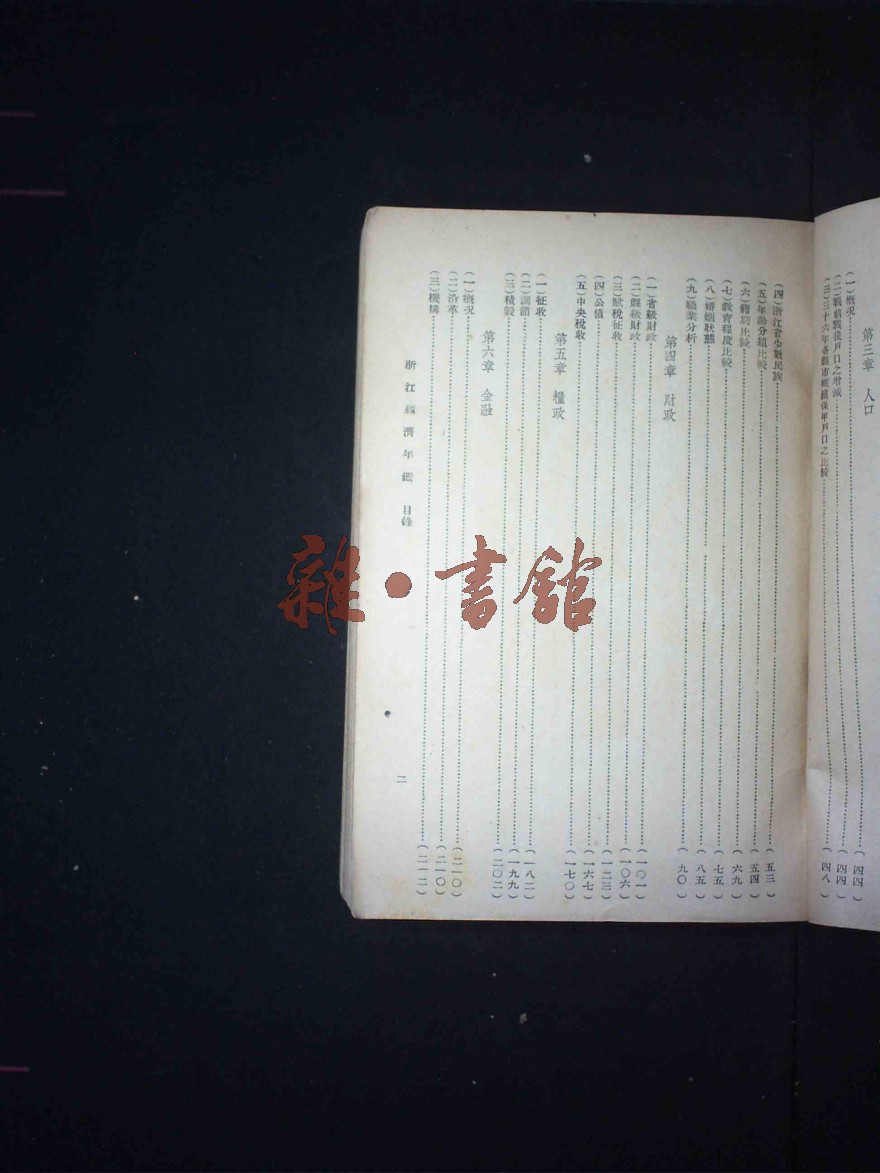 第三章 人口
(一)概況………(四四)
(二)戰前戰後戶口之增減………(四四)
(三)三十六年各縣市鄉鎮保甲戶口之比較………(四八)
(四)浙江省少數民族………(五三)
(五)年齡分組比較………(五四)
(六)籍別比較………(六九)
(七)教育程度比較………(七五)
(八)婚姻狀態………(八五)
(九)職業分析………(九〇)
第四章 財政
(一)省級財政………(一〇一)
(二)縣級財政………(一〇六)
(三)賦稅征收………(一二三)
(四)公債………(一六七)
(五)中央稅收………(一七〇)
第五章 糧政
(一)征收………(一八二)
(二)調節………(一九九)
(三)積穀………(二〇二)
第六章 金融
(一)概況………(二一〇)
(二)沿革………(二一〇)
(三)機構………(二一二)
浙江經濟年鑑 目錄
二
雜·書館